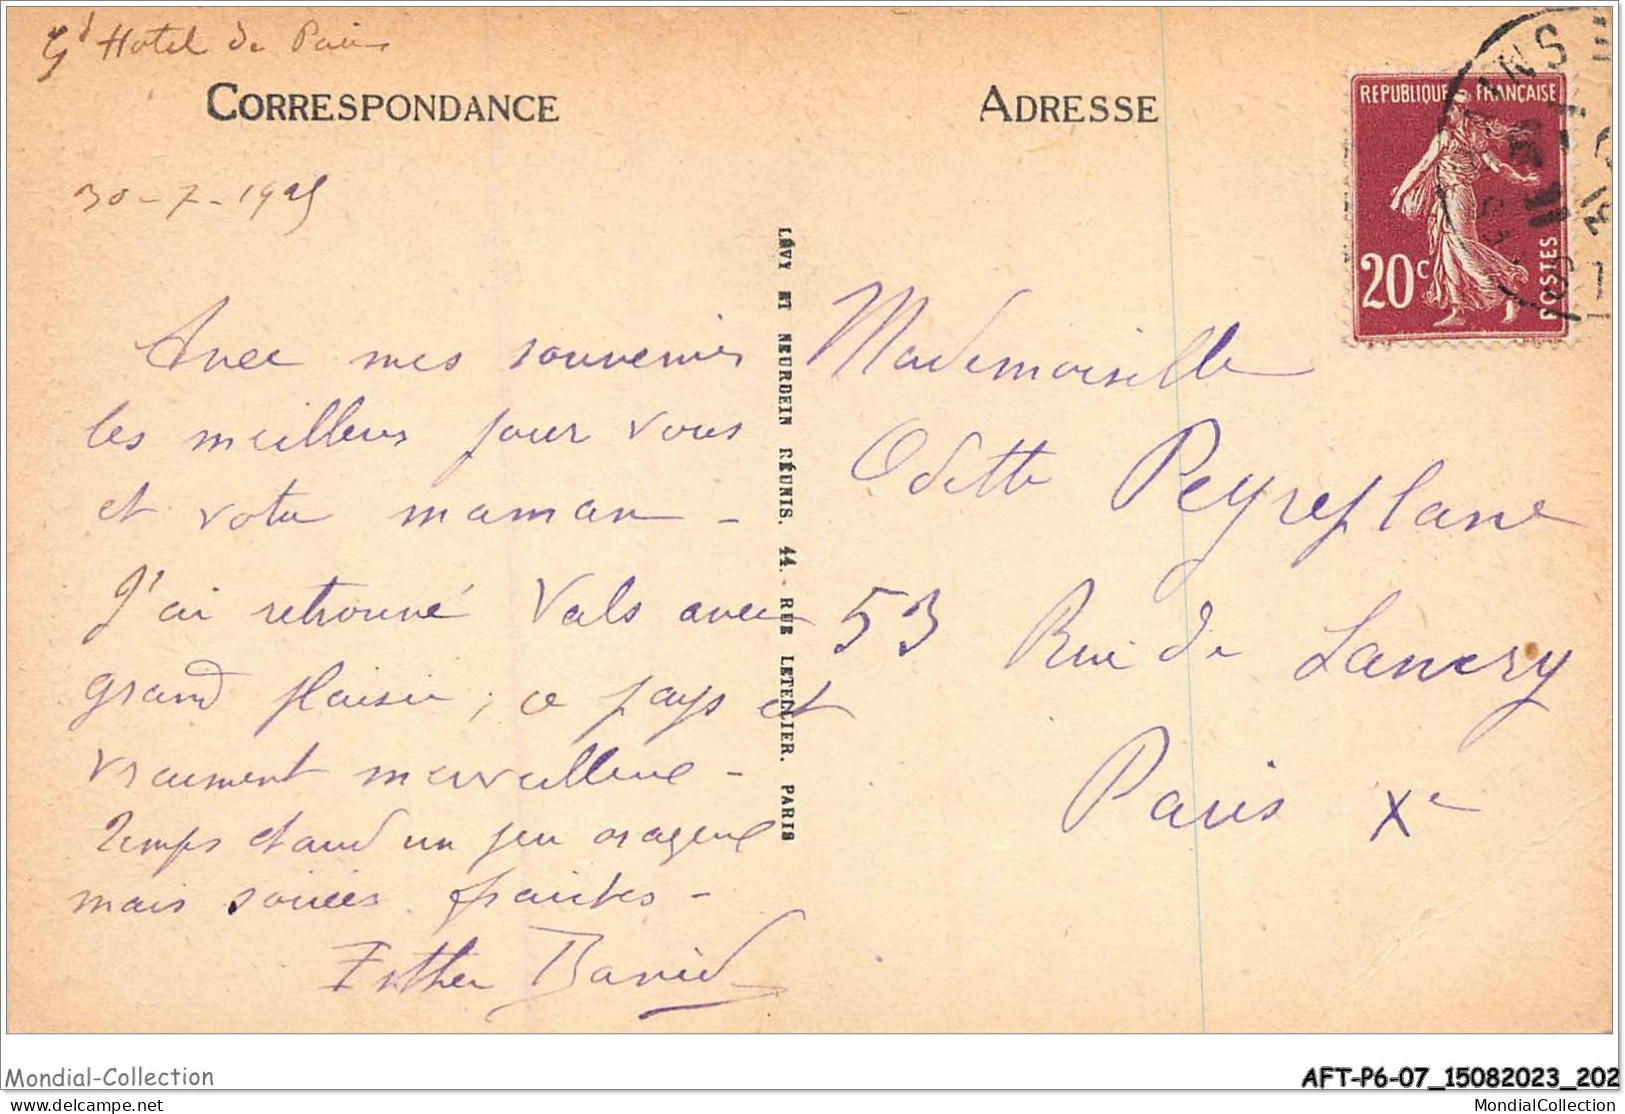 Gd Hotel de Paris
CORRESPONDANCE
30-7-1925
Avec mes souvenirs
les meilleurs pour vous
et votre maman -
J'ai retrouvé Vals avec
grand plaisir ; ce pays est
vraiment merveilleux -
Temps chaud un peu orageux
mais soirées fraiches -
Esther David
LÉVY ET NEURDEIN RÉUNIS. 44. RUE LETELLIER. PARIS
ADRESSE
REPUBLIQUE FRANÇAISE
20c
POSTES
Mademoiselle
Odette Peyreflane
53 Rue de Lancry
Paris Xe
Mondial-Collection
AFT-P6-07_15082023_202
delcampe.net
MondialCollection